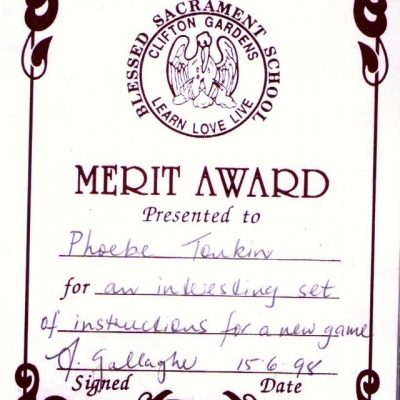 BLESSED SACRAMENT SCHOOL
CLIFTON GARDENS
LEARN LOVE LIVE
MERIT AWARD
Presented to
Phoebe Tonkin
for an interesting set
of instructions for a new game
J. Gallagher 15-6-98
Signed Date